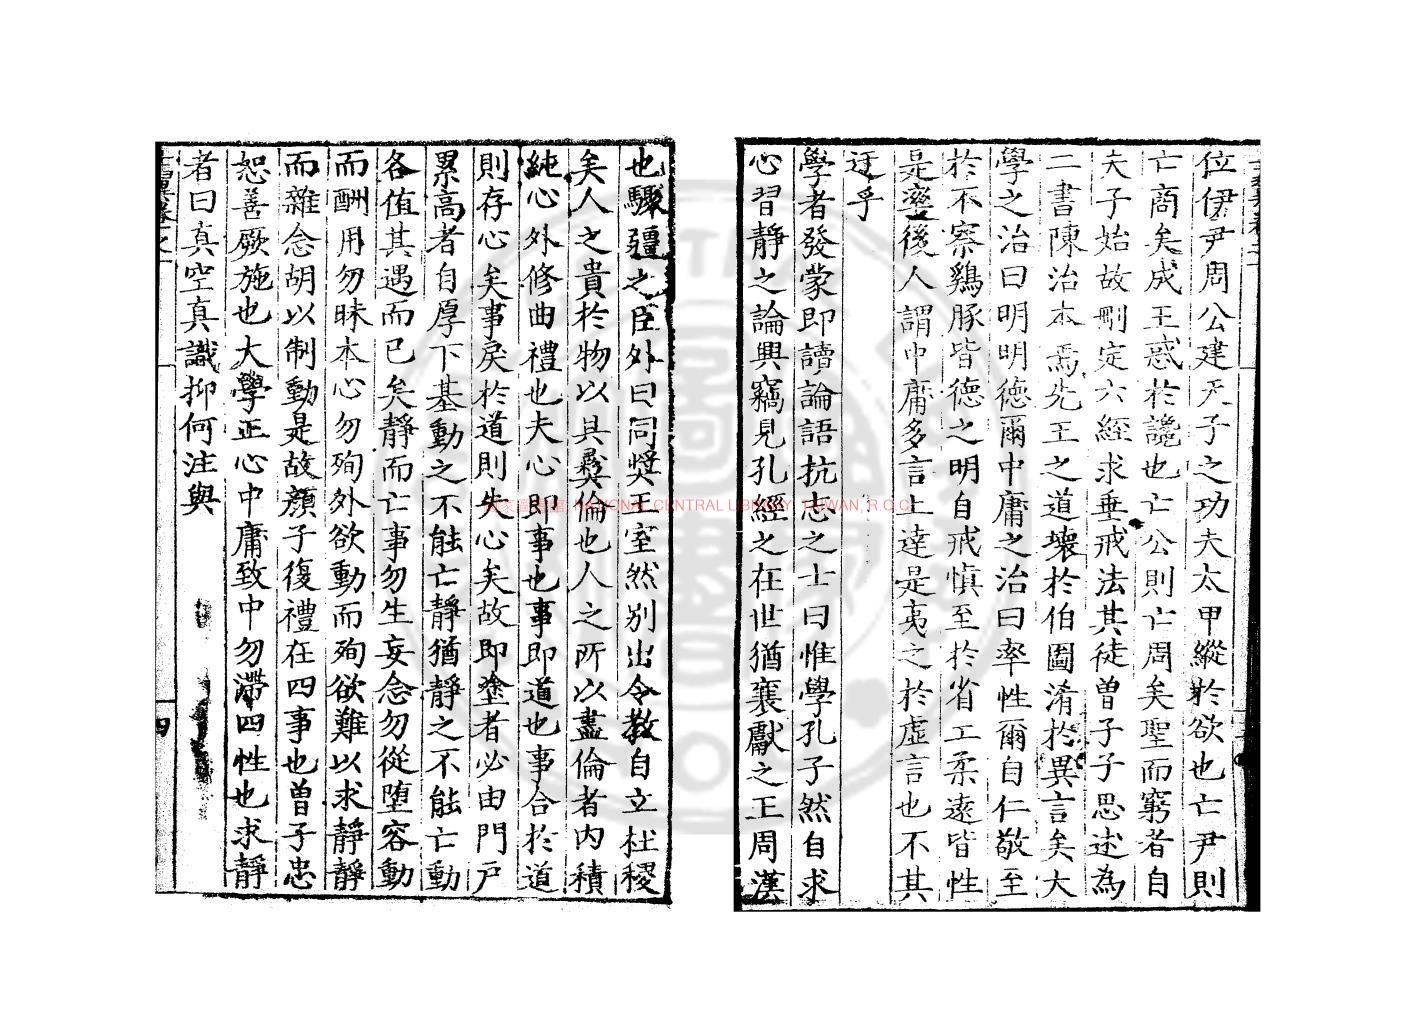 位伊尹周公建天子之功夫太甲縱於欲也亡尹則
亡商矣成王惑於讒也亡公則亡周矣聖而窮者自
夫子始故刪定六經求垂戒法其徒曾子子思述為
二書陳治本焉先王之道壞於伯圖淆於異言矣大
學之治曰明明德爾中庸之治曰率性爾自仁敬至
於不察鷄豚皆德之明自戒慎至於省工柔遠皆性
是率後人謂中庸多言上達是夷之於虛言也不其
迂乎
學者發蒙即讀論語抗志之士曰惟學孔子然自求
心習靜之論興竊見孔經之在世猶襄獻之王周漢
也驟疆之臣外曰同獎王室然別出令教自立杜稷
矣人之貴於物以具彞倫也人之所以盡倫者內積
純心外修曲禮也夫心即事也事即道也事合於道
則存心矣事戾於道則失心矣故即塗者必由門戶
累高者自厚下基動之不能亡靜猶靜之不能亡動
各值其遇而已矣靜而亡事勿生妄念勿從墮容動
而酬用勿昧本心勿殉外欲動而殉欲難以求靜靜
而雜念胡以制動是故顏子復禮在四事也曾子忠
恕善厥施也大學正心中庸致中勿滯四性也求靜
者曰真空真識抑何注與
四
國家圖書館, NATIONAL CENTRAL LIBRARY, TAIWAN, R.O.C.